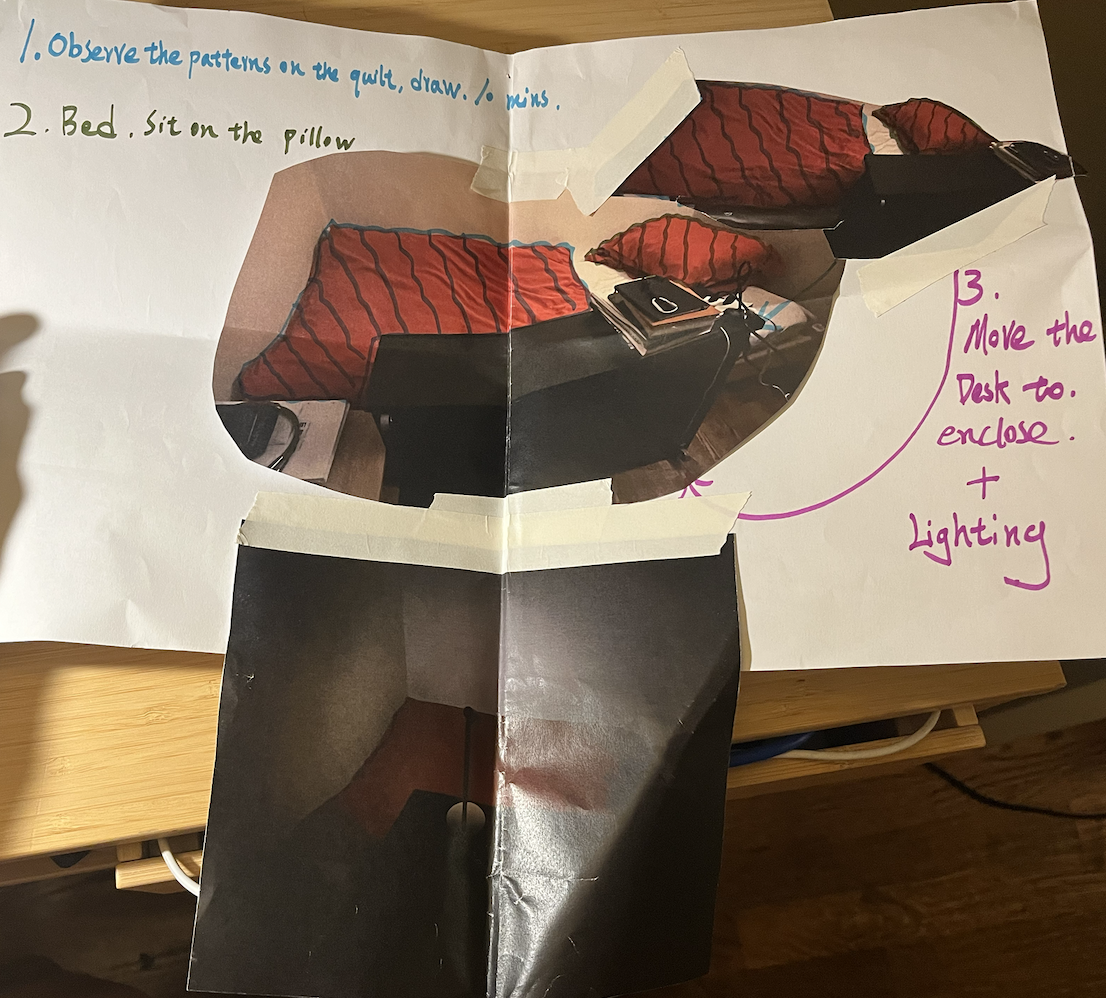 1. Observe the patterns on the quilt, draw. 10 mins.
2. Bed. Sit on the pillow
3.
Move the
Desk to.
enclose.
+
Lighting